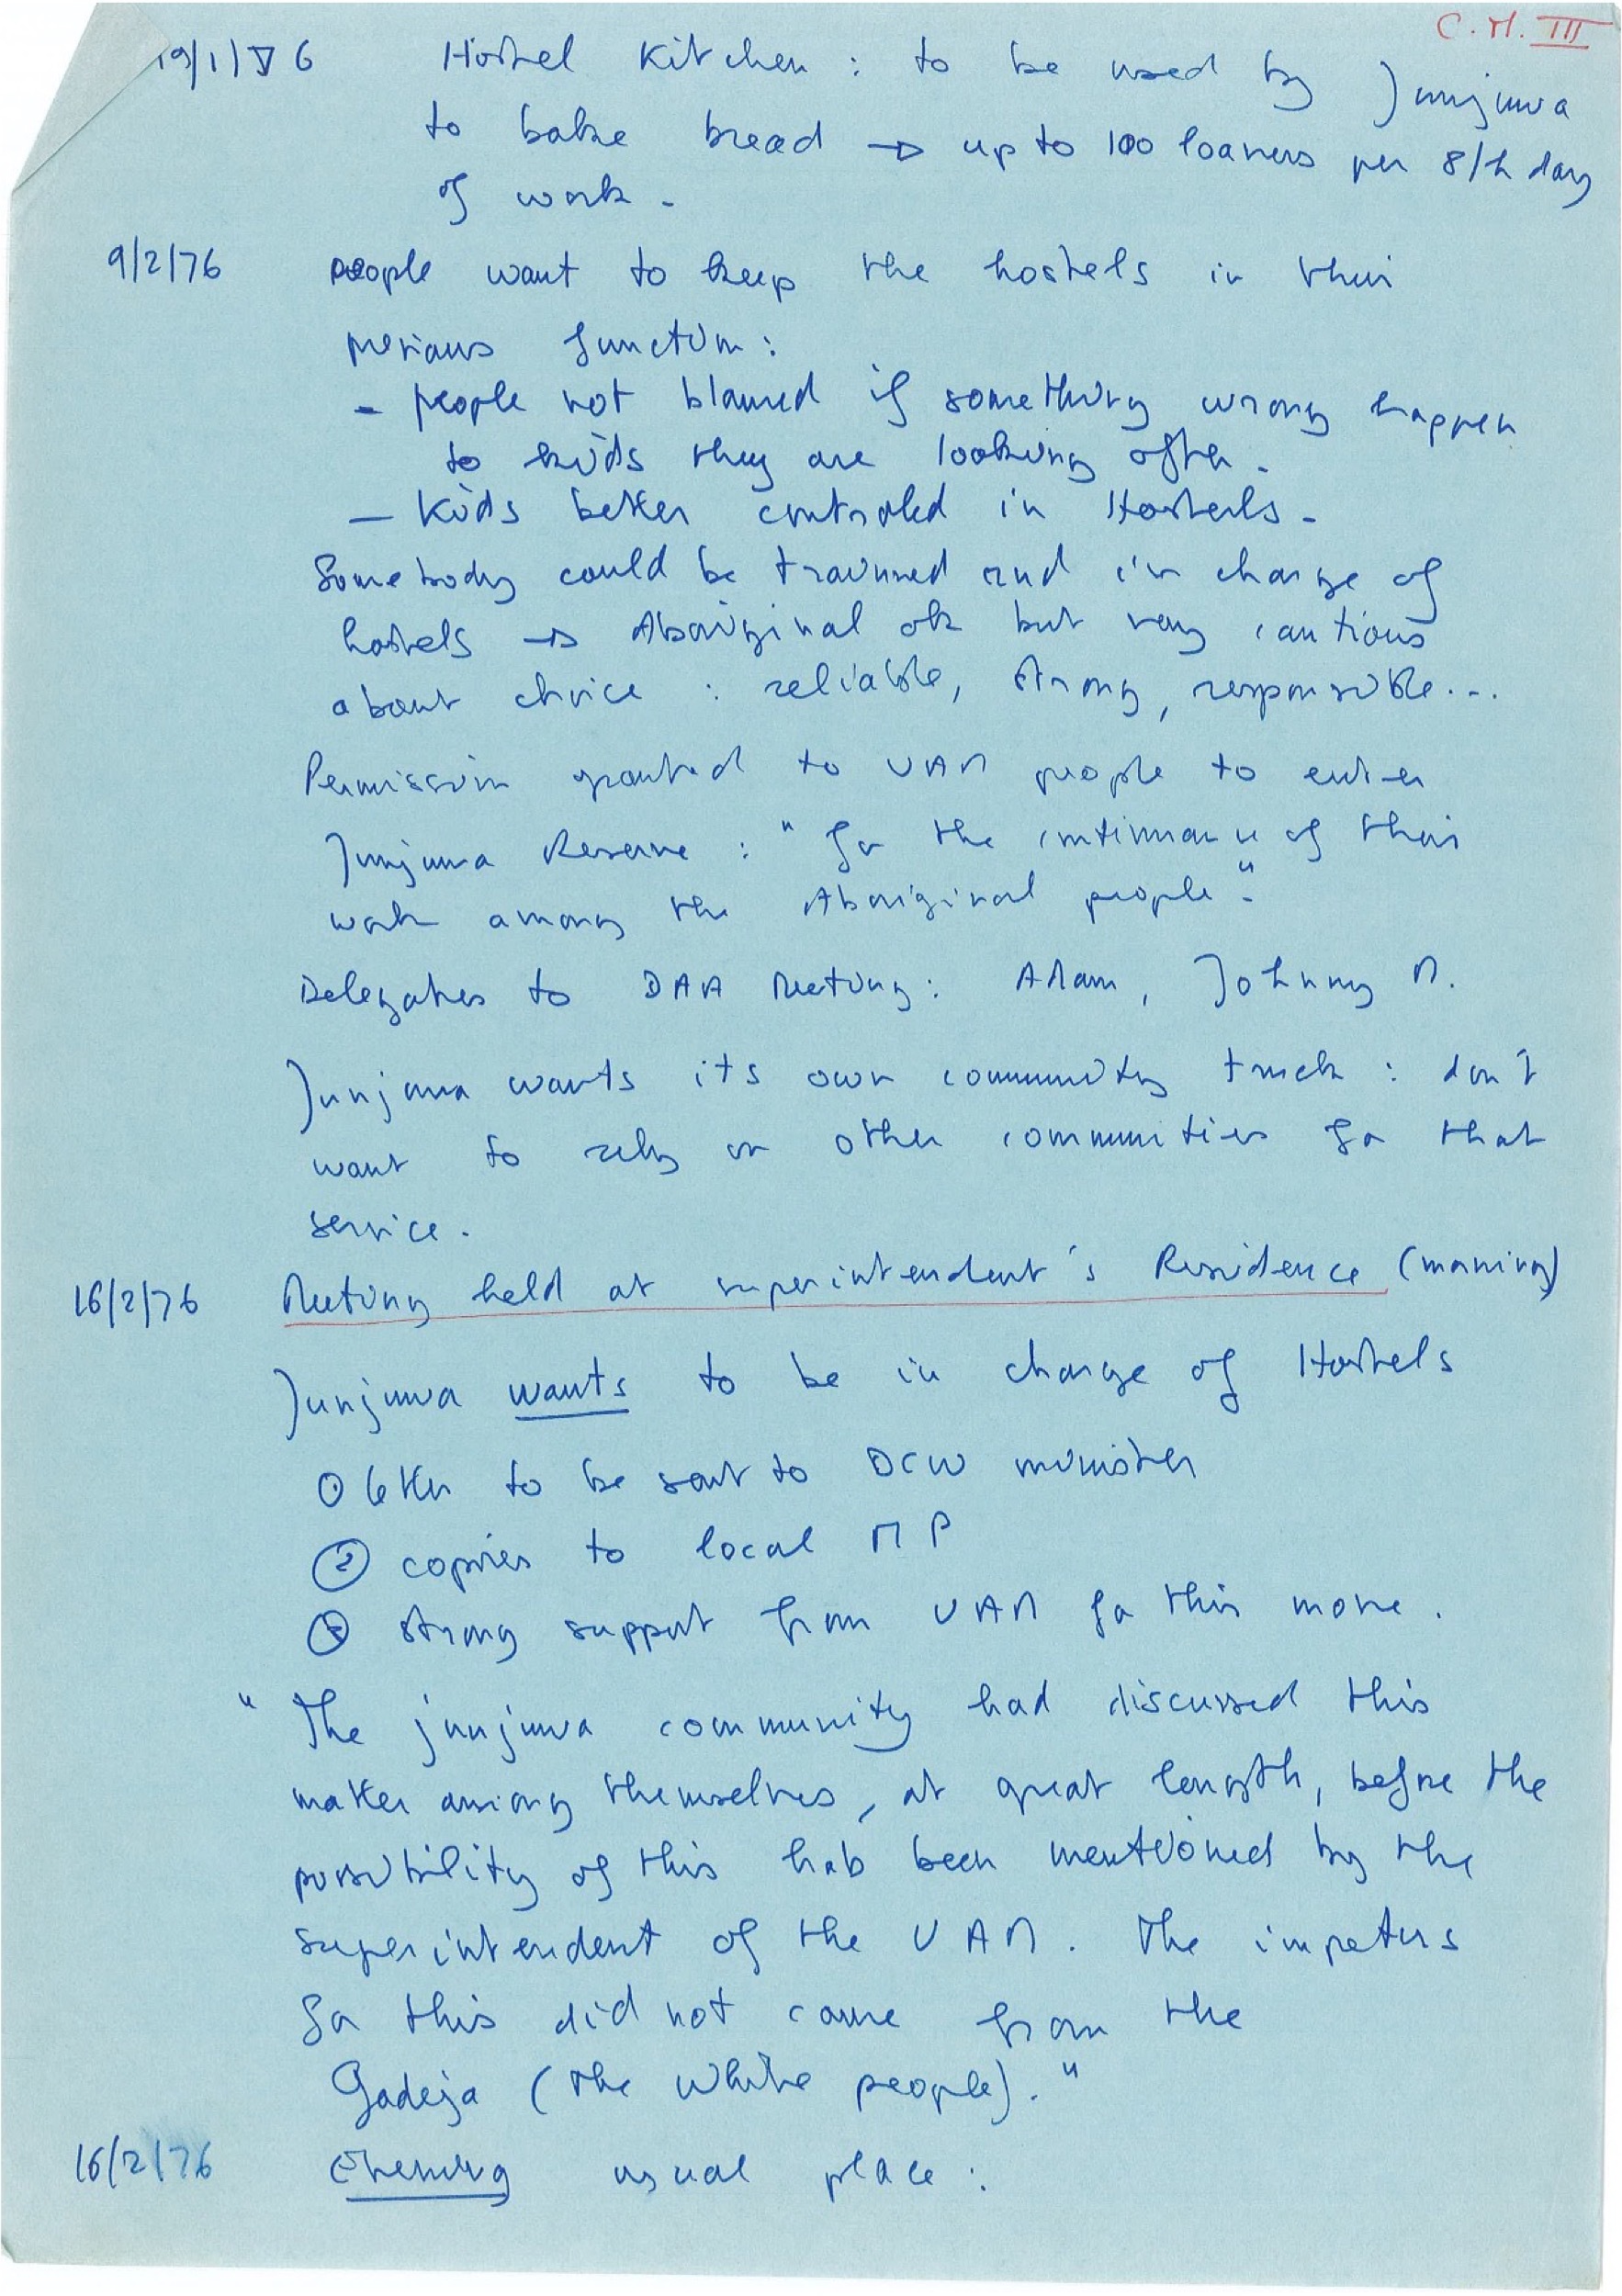 C.M. III
19/1/76 Hostel Kitchen : to be used by Junjuwa
to bake bread → up to 100 loaves per 8/h day
of work -
9/2/76 people want to keep the hostels in their
previous function :
- people not blamed if something wrong happen
to kids they are looking after -
- Kids better controled in Hostels -
Somebody could be trainned and in charge of
hostels → Aboriginal ok but very cautious
about choice : reliable, strong, responsible...
Permission granted to UAM people to enter
Junjuwa Reserve : "for the continuance of their
work among the Aboriginal people".
Delegates to DAA Meeting : Adam, Johnny M.
Junjuwa wants its own community truck : don't
want to rely on other communities for that
service.
16/2/76 Meeting held at superintendent's Residence (morning)
Junjuwa wants to be in charge of Hostels
① letter to be sent to DCW minister
② copies to local MP
③ strong support from UAM for this move.
"The junjuwa community had discussed this
matter among themselves, at great length, before the
possibility of this hab been mentioned by the
superintendent of the UAM. The impetus
for this did not come from the
Gadeja (the white people)."
16/2/76 Evening usual place :